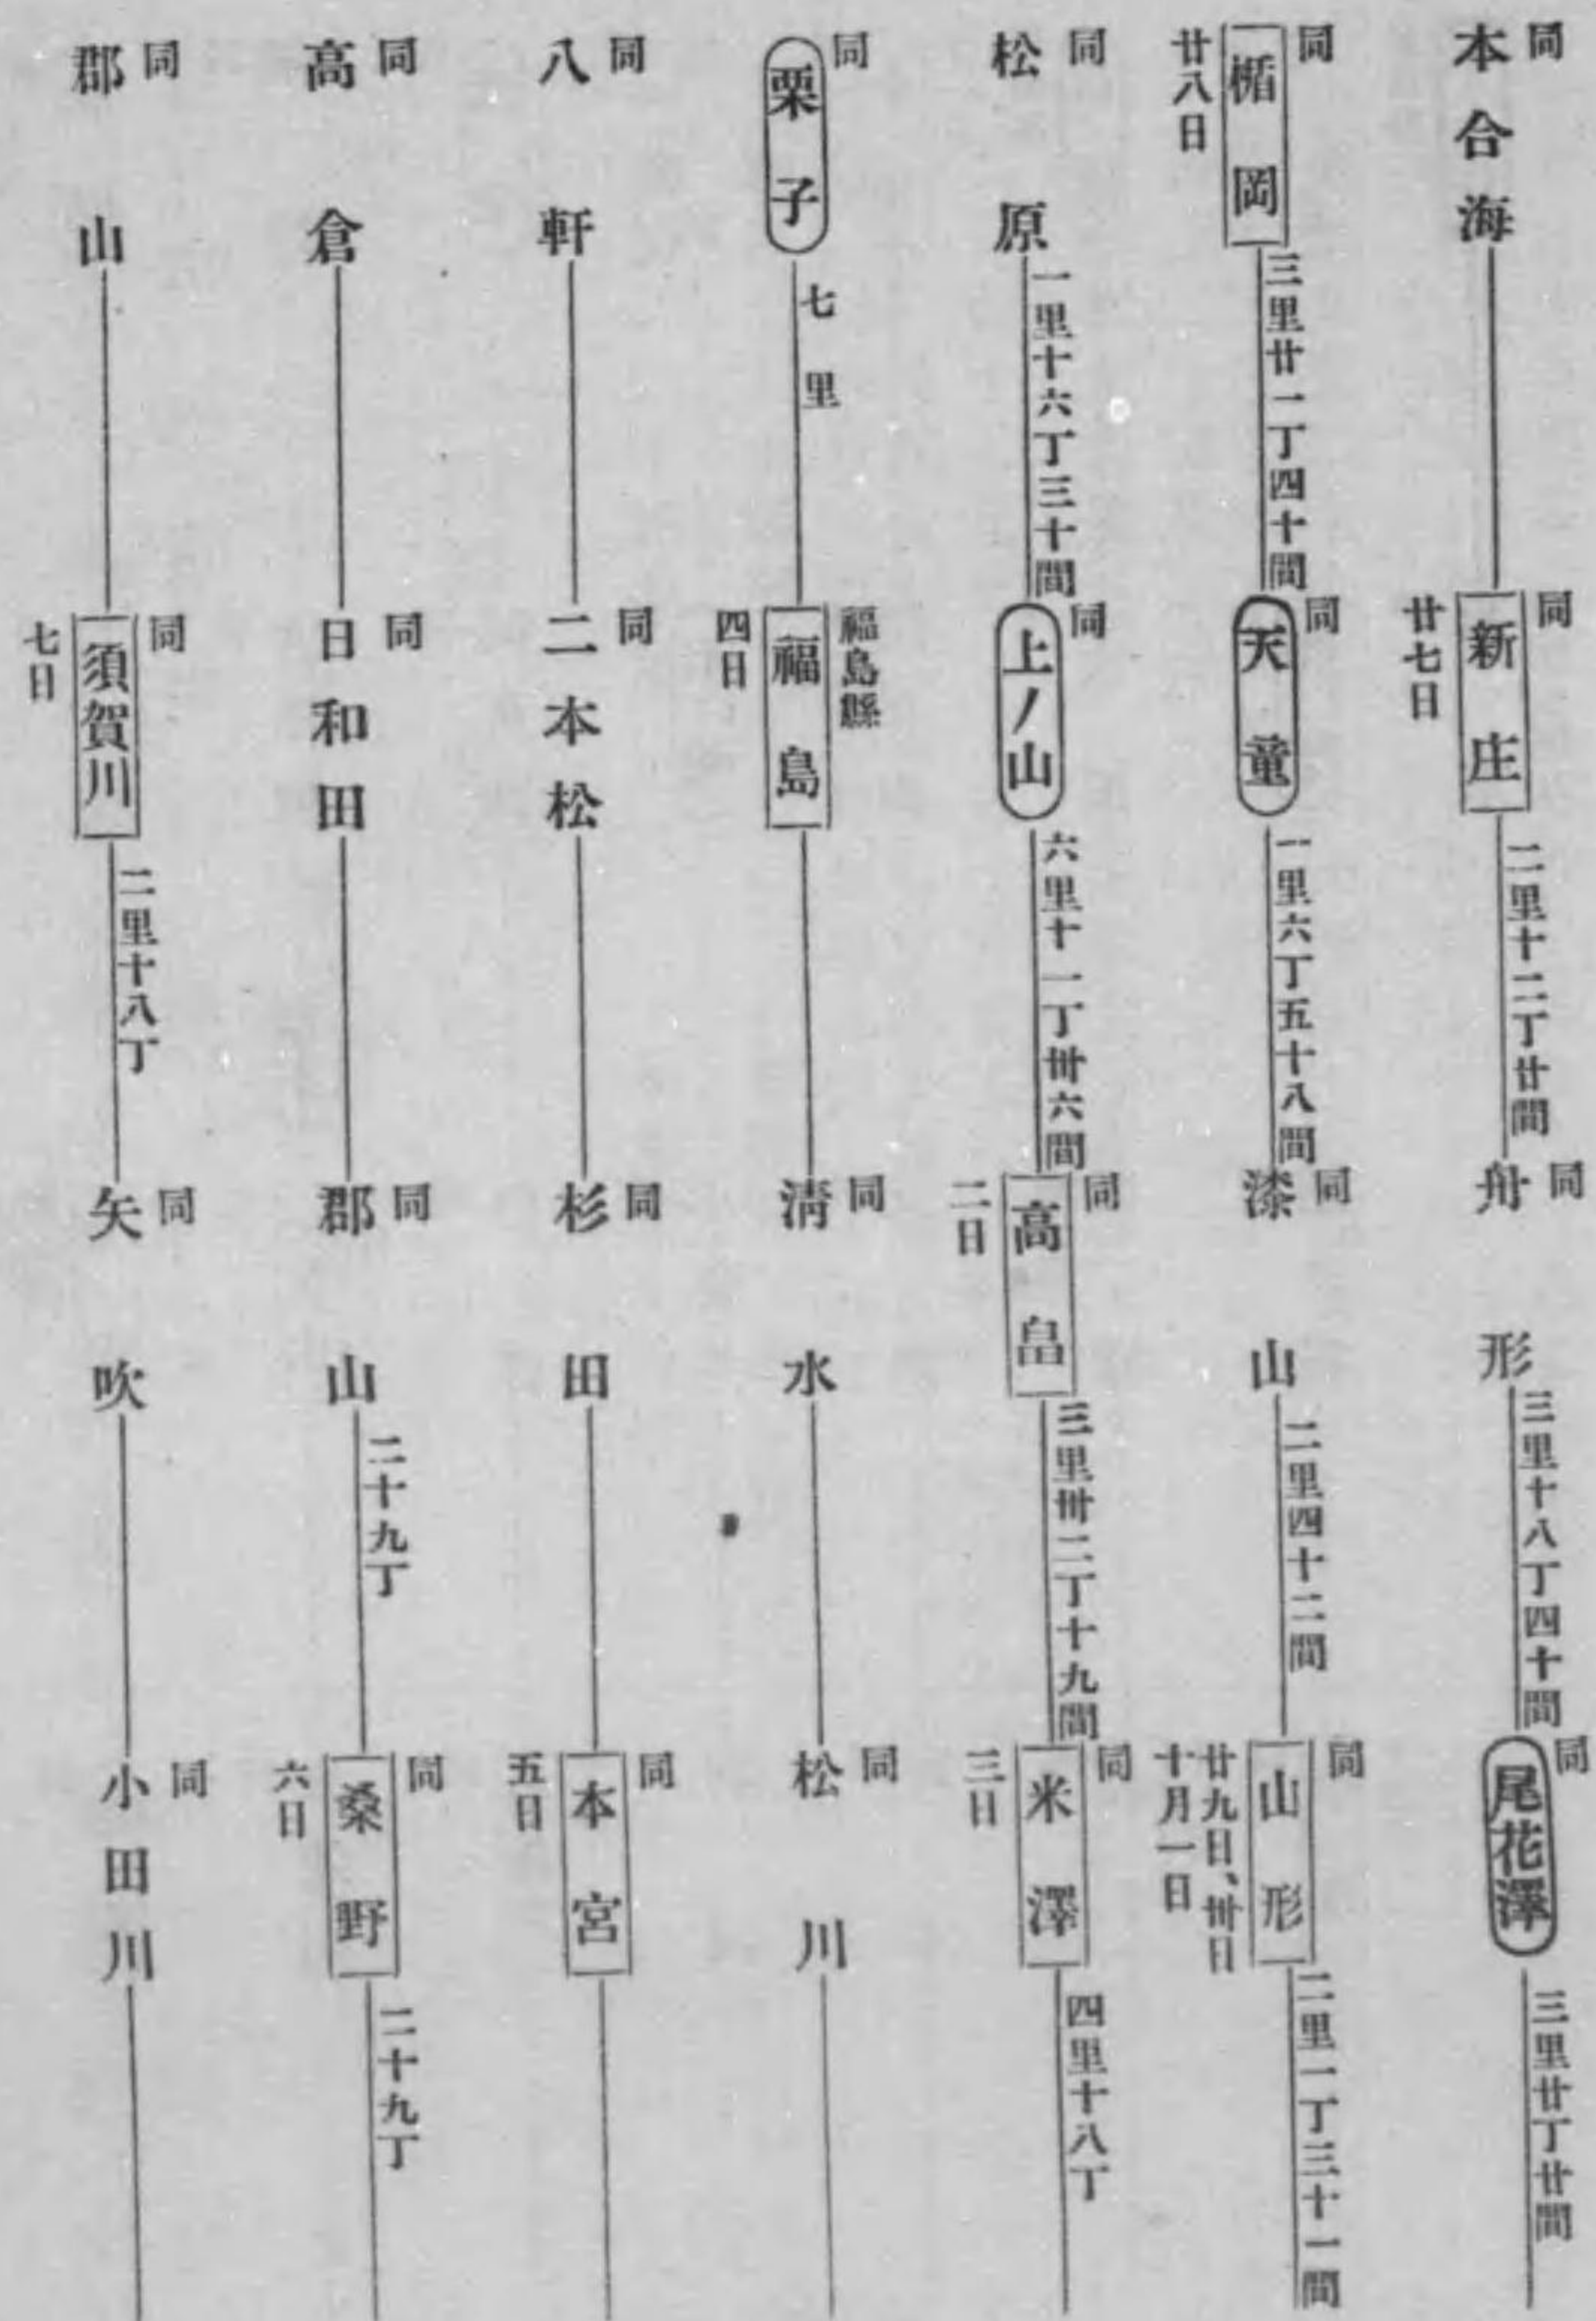 同
本合海
同
新庄
廿七日
二里十二丁廿間
同
舟形
三里十八丁四十間
同
尾花澤
三里廿丁廿間
同
楯岡
廿八日
三里廿一丁四十間
同
天童
一里六丁五十八間
同
漆山
二里四十二間
同
山形
廿九日、卅日
十月一日
二里一丁三十一間
同
松原
一里十六丁三十間
同
上ノ山
六里十一丁卅六間
同
高畠
二日
三里卅二丁十九間
同
米澤
三日
四里十八丁
同
栗子
七里
福島縣
福島
四日
同
淸水
同
松川
同
八軒
同
二本松
同
杉田
同
本宮
五日
同
高倉
同
日和田
同
郡山
二十九丁
同
桑野
六日
二十九丁
同
郡山
同
須賀川
七日
二里十八丁
同
矢吹
同
小田川